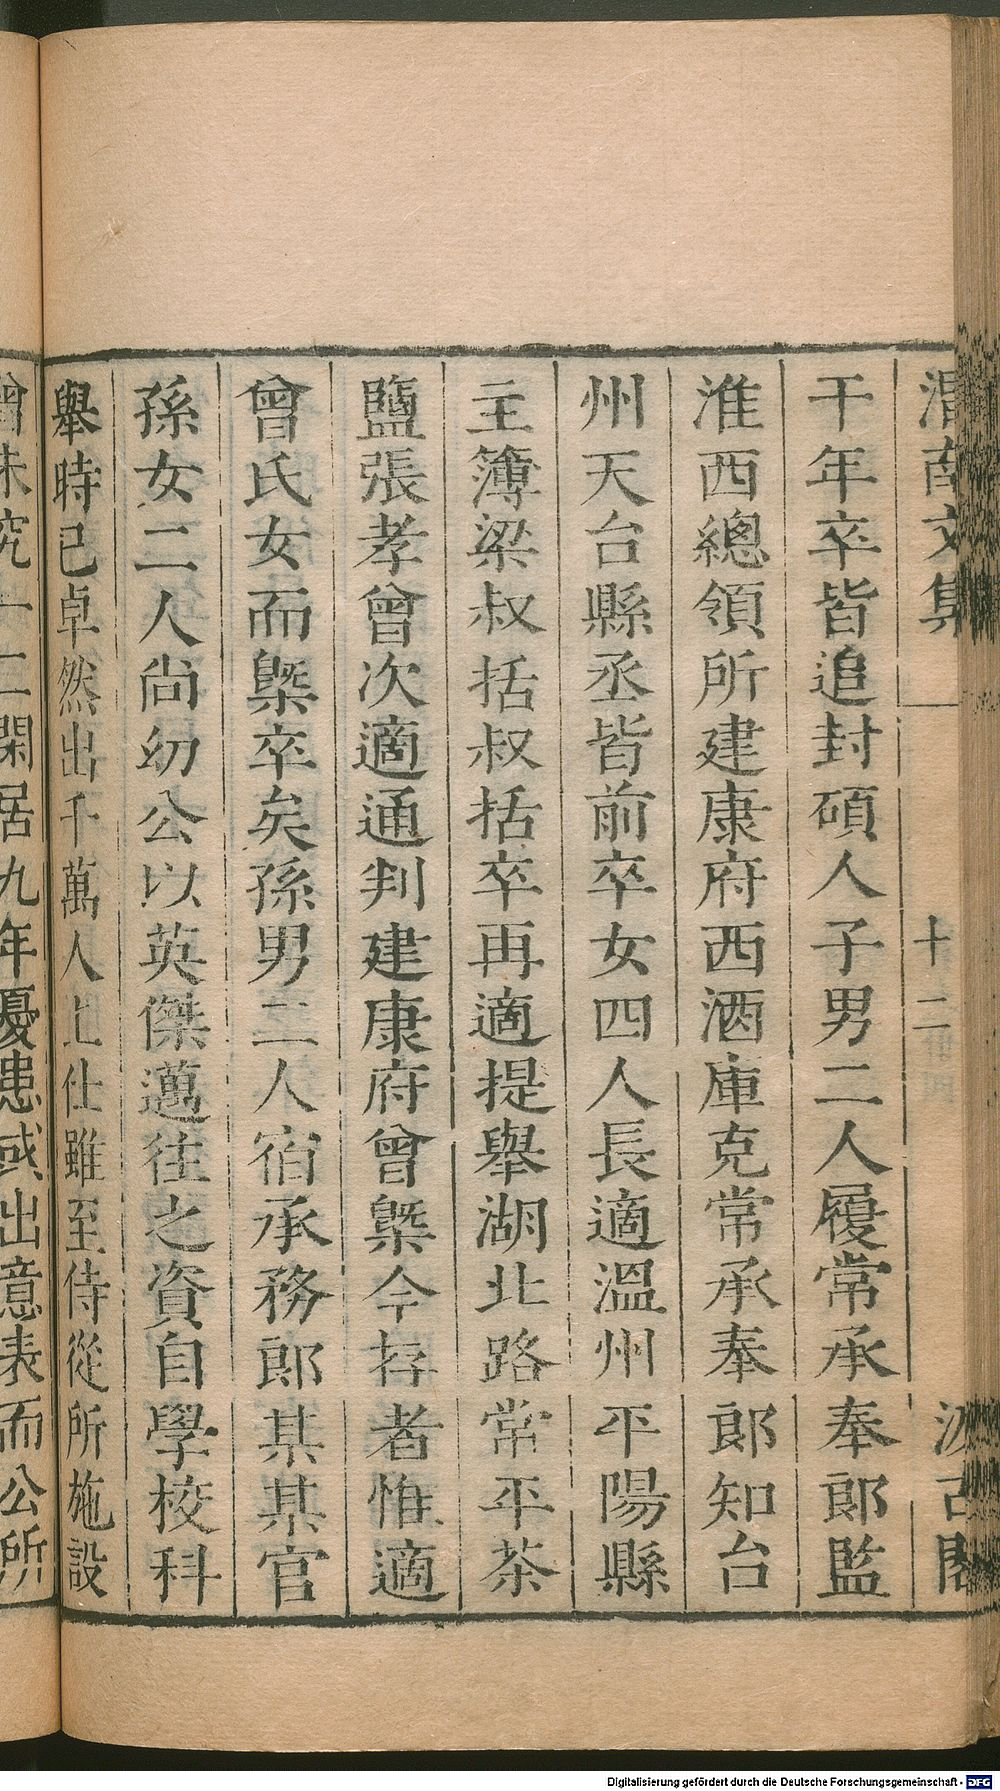 渭南文集 十二 汲古閣
干年卒皆追封碩人子男二人履常承奉郎監
淮西總領所建康府西酒庫克常承奉郎知台
州天台縣丞皆前卒女四人長適溫州平陽縣
主簿梁叔括叔括卒再適提舉湖北路常平茶
鹽張孝曾次適通判建康府曾槩今存者惟適
曾氏女而槩卒矣孫男二人宿承務郎某某官
孫女二人尚幼公以英傑邁往之資自學校科
舉時已卓然出千萬人上仕雖至侍從所施設
曾未究一二閑居九年憂患或出意表而公所
Digitalisierung gefördert durch die Deutsche Forschungsgemeinschaft - DFG